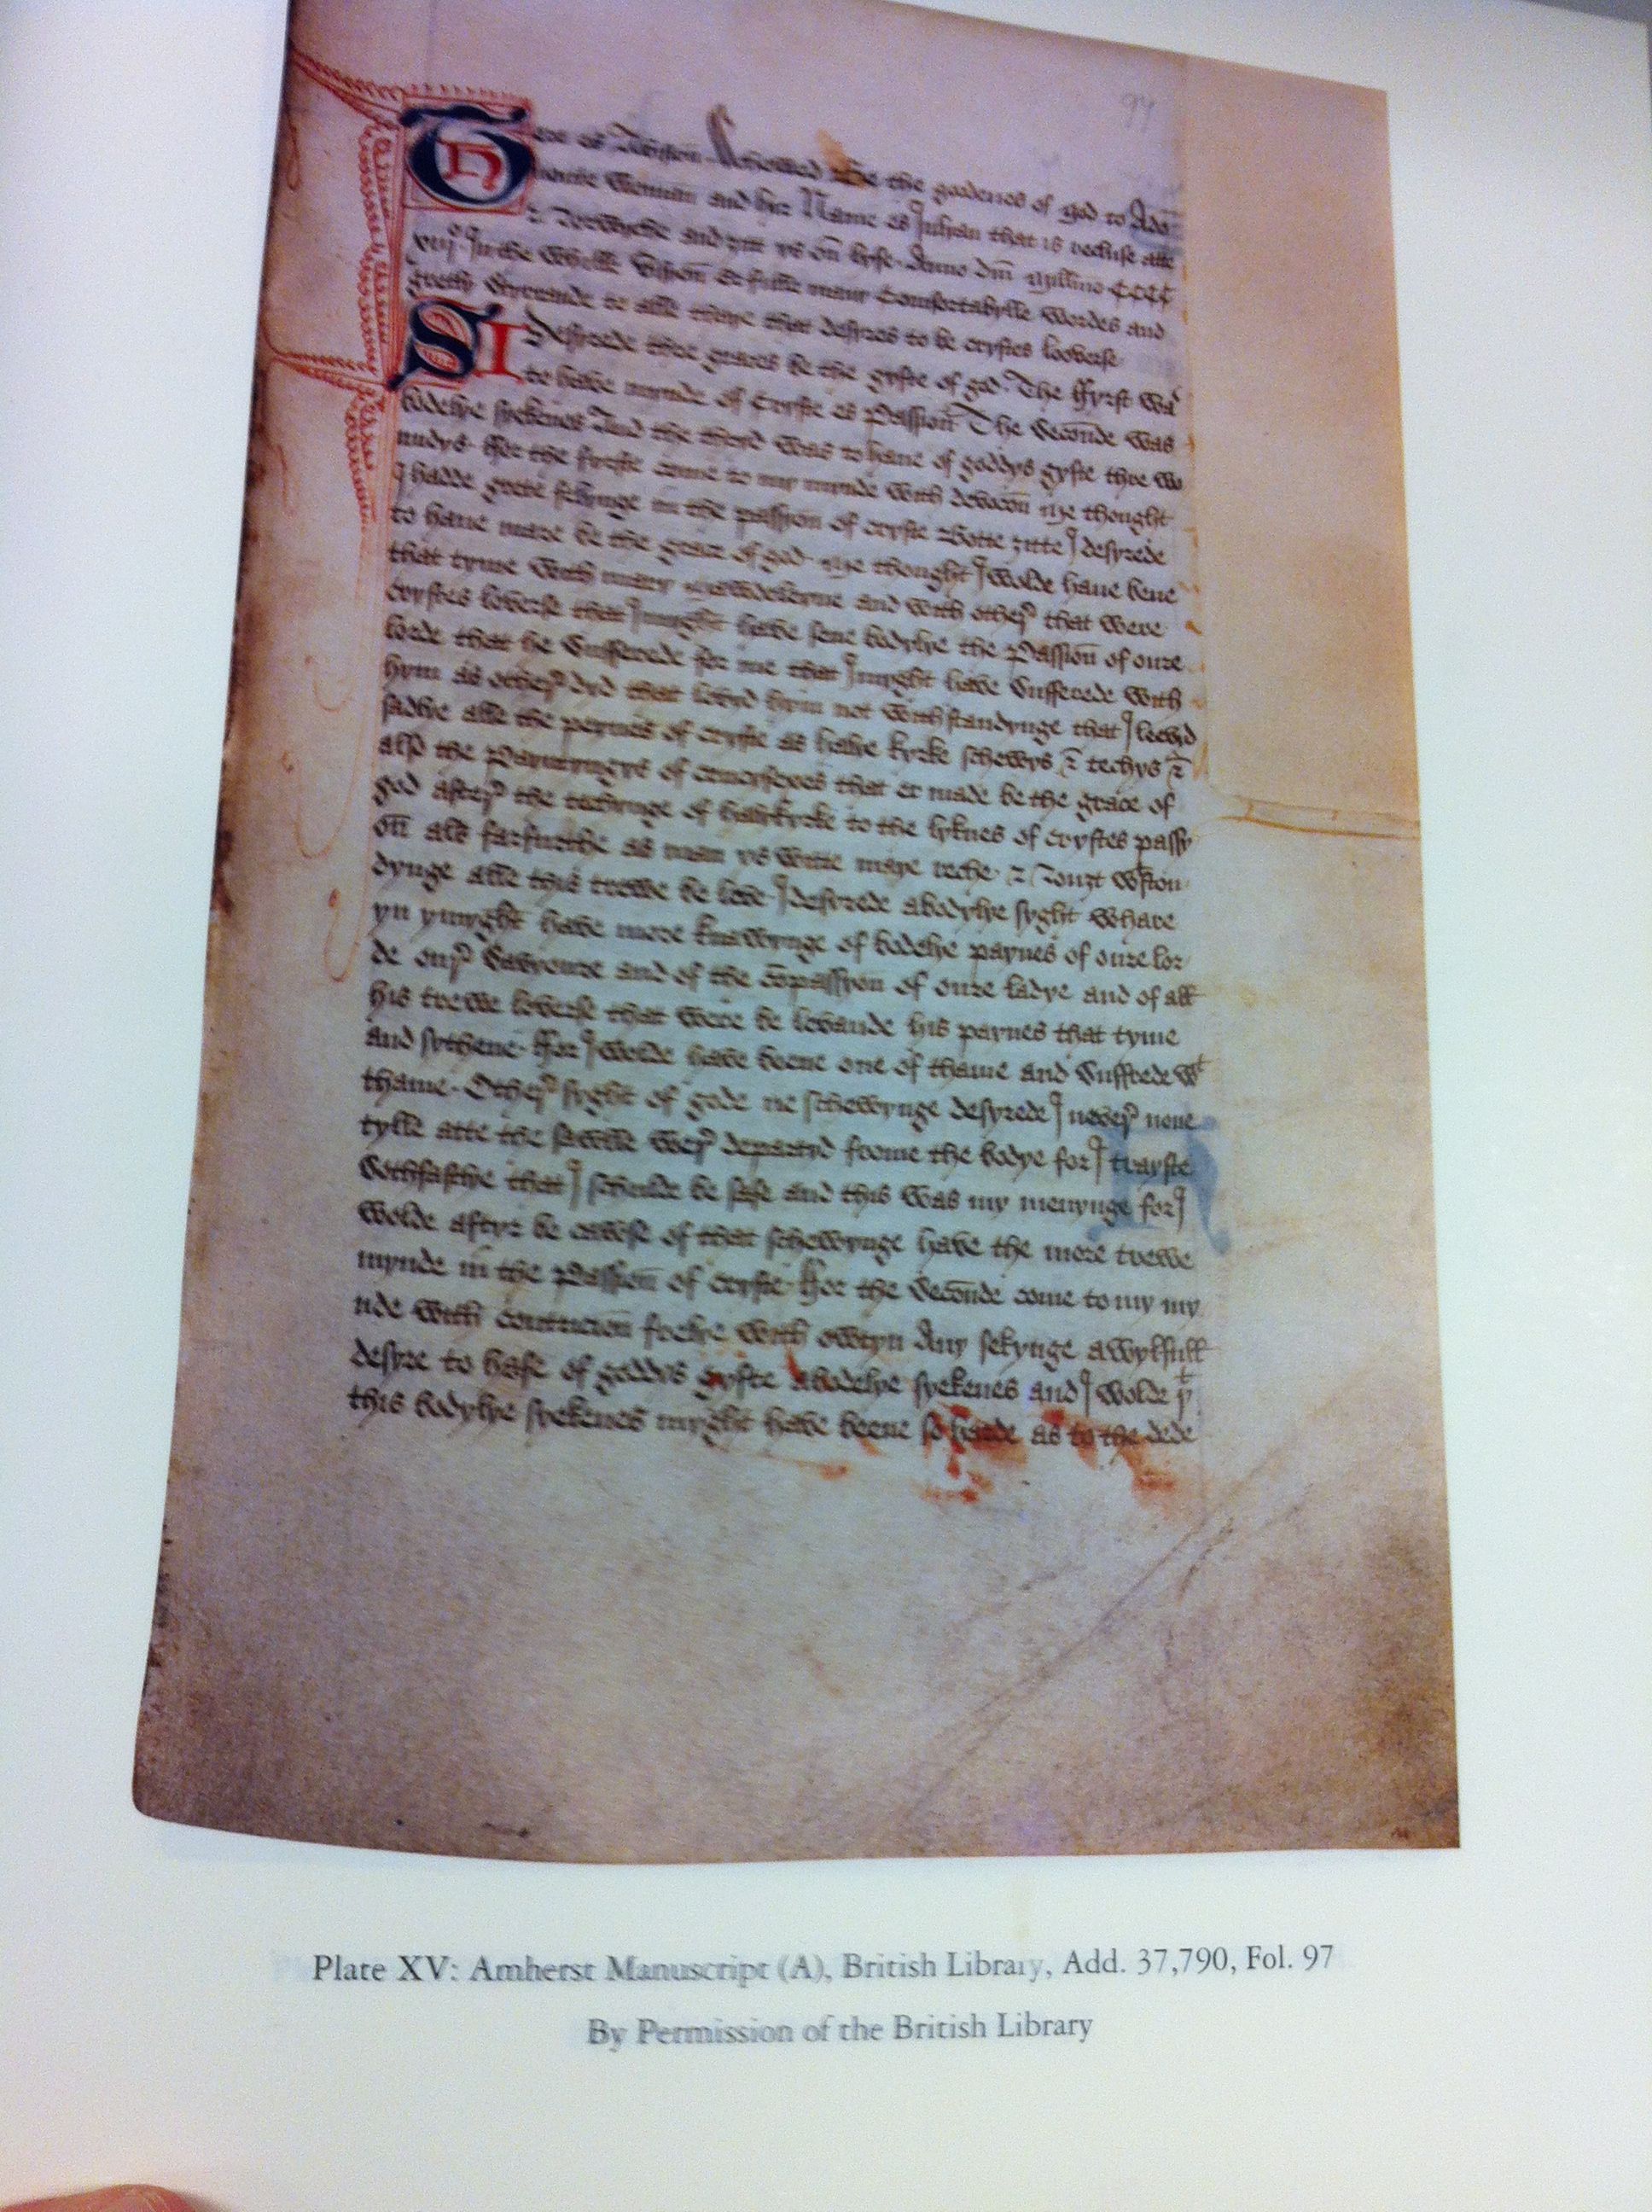 97
There es Avisioun Schewed Be the goodenes of god to Ade
uoute Woman and hir Name es Julyan that is recluse atte
Norwyche and ȝitt ys oñ lyfe. Anno dm̄ millimo CCCC
xiijo. In the whilk visyoñ er fulle many Comfortabylle wordes and
gretly Styrrande to alle thaye that desyres to be crystes looverse
I Desyrede thre graces be the gyfte of god. The ffyrst was
to have mynde of Cryste es Passioñ. The Secoūde was
bodelye syekenes And the thryd was to haue of goddys gyfte thre wo
undys. ffor the fyrste come to my mynde with devocoñ me thought
I hadde grete felynge in the passyon of cryste Botte ȝitte I desyrede
to haue mare be the grace of god. me thought I wolde haue bene
that tyme with mary Mawdeleyne and with othere that were
crystes loverse that I myght have sene bodylye the Passioñ of oure
lorde that he Sufferede for me that I myght have Sufferede with
hym as othere dyd that lovyd hym not withstandynge that I leevyd
sadlye alle the peynes of cryste as halye kyrke schewys & techys &
also the Payntyngys of crucyfexes that er made be the grace of
god aftere the techynge of halykyrke to the lyknes of crystes passy
oñ als farfurthe as man ys witte maye reche. Nouȝt wtston
dynge alle this trewe be leve I desyrede abodylye syght whare
yn y myght have more knawynge of bodelye paynes of oure lor
de oure Savyoure and of the cōpassyon of oure ladye and of all
his trewe loverse that were be levande his paynes that tyme
and sythene. ffor I wolde have beene one of thame and Suffrede wt
thame. Othere syght of gode ne schewynge desyrede I nevere none
tylle atte the sawlle were departyd frome the bodye for I trayste
sothfastlye that I schulde be safe and this was my menynge for I
wolde aftyr be cawse of that schewynge have the more trewe
mynde in the Passioñ of cryste. ffor the Secoūde come to my my
nde with contricioñ frelye with owtyn Any sekynge a wylfull
desyre to hafe of goddys gyfte a bodelye syekenes and I wolde þt
this bodylye syekenes myght have beene so harde as to the dede
Plate XV: Amherst Manuscript (A), British Library, Add. 37,790, Fol. 97
By Permission of the British Library